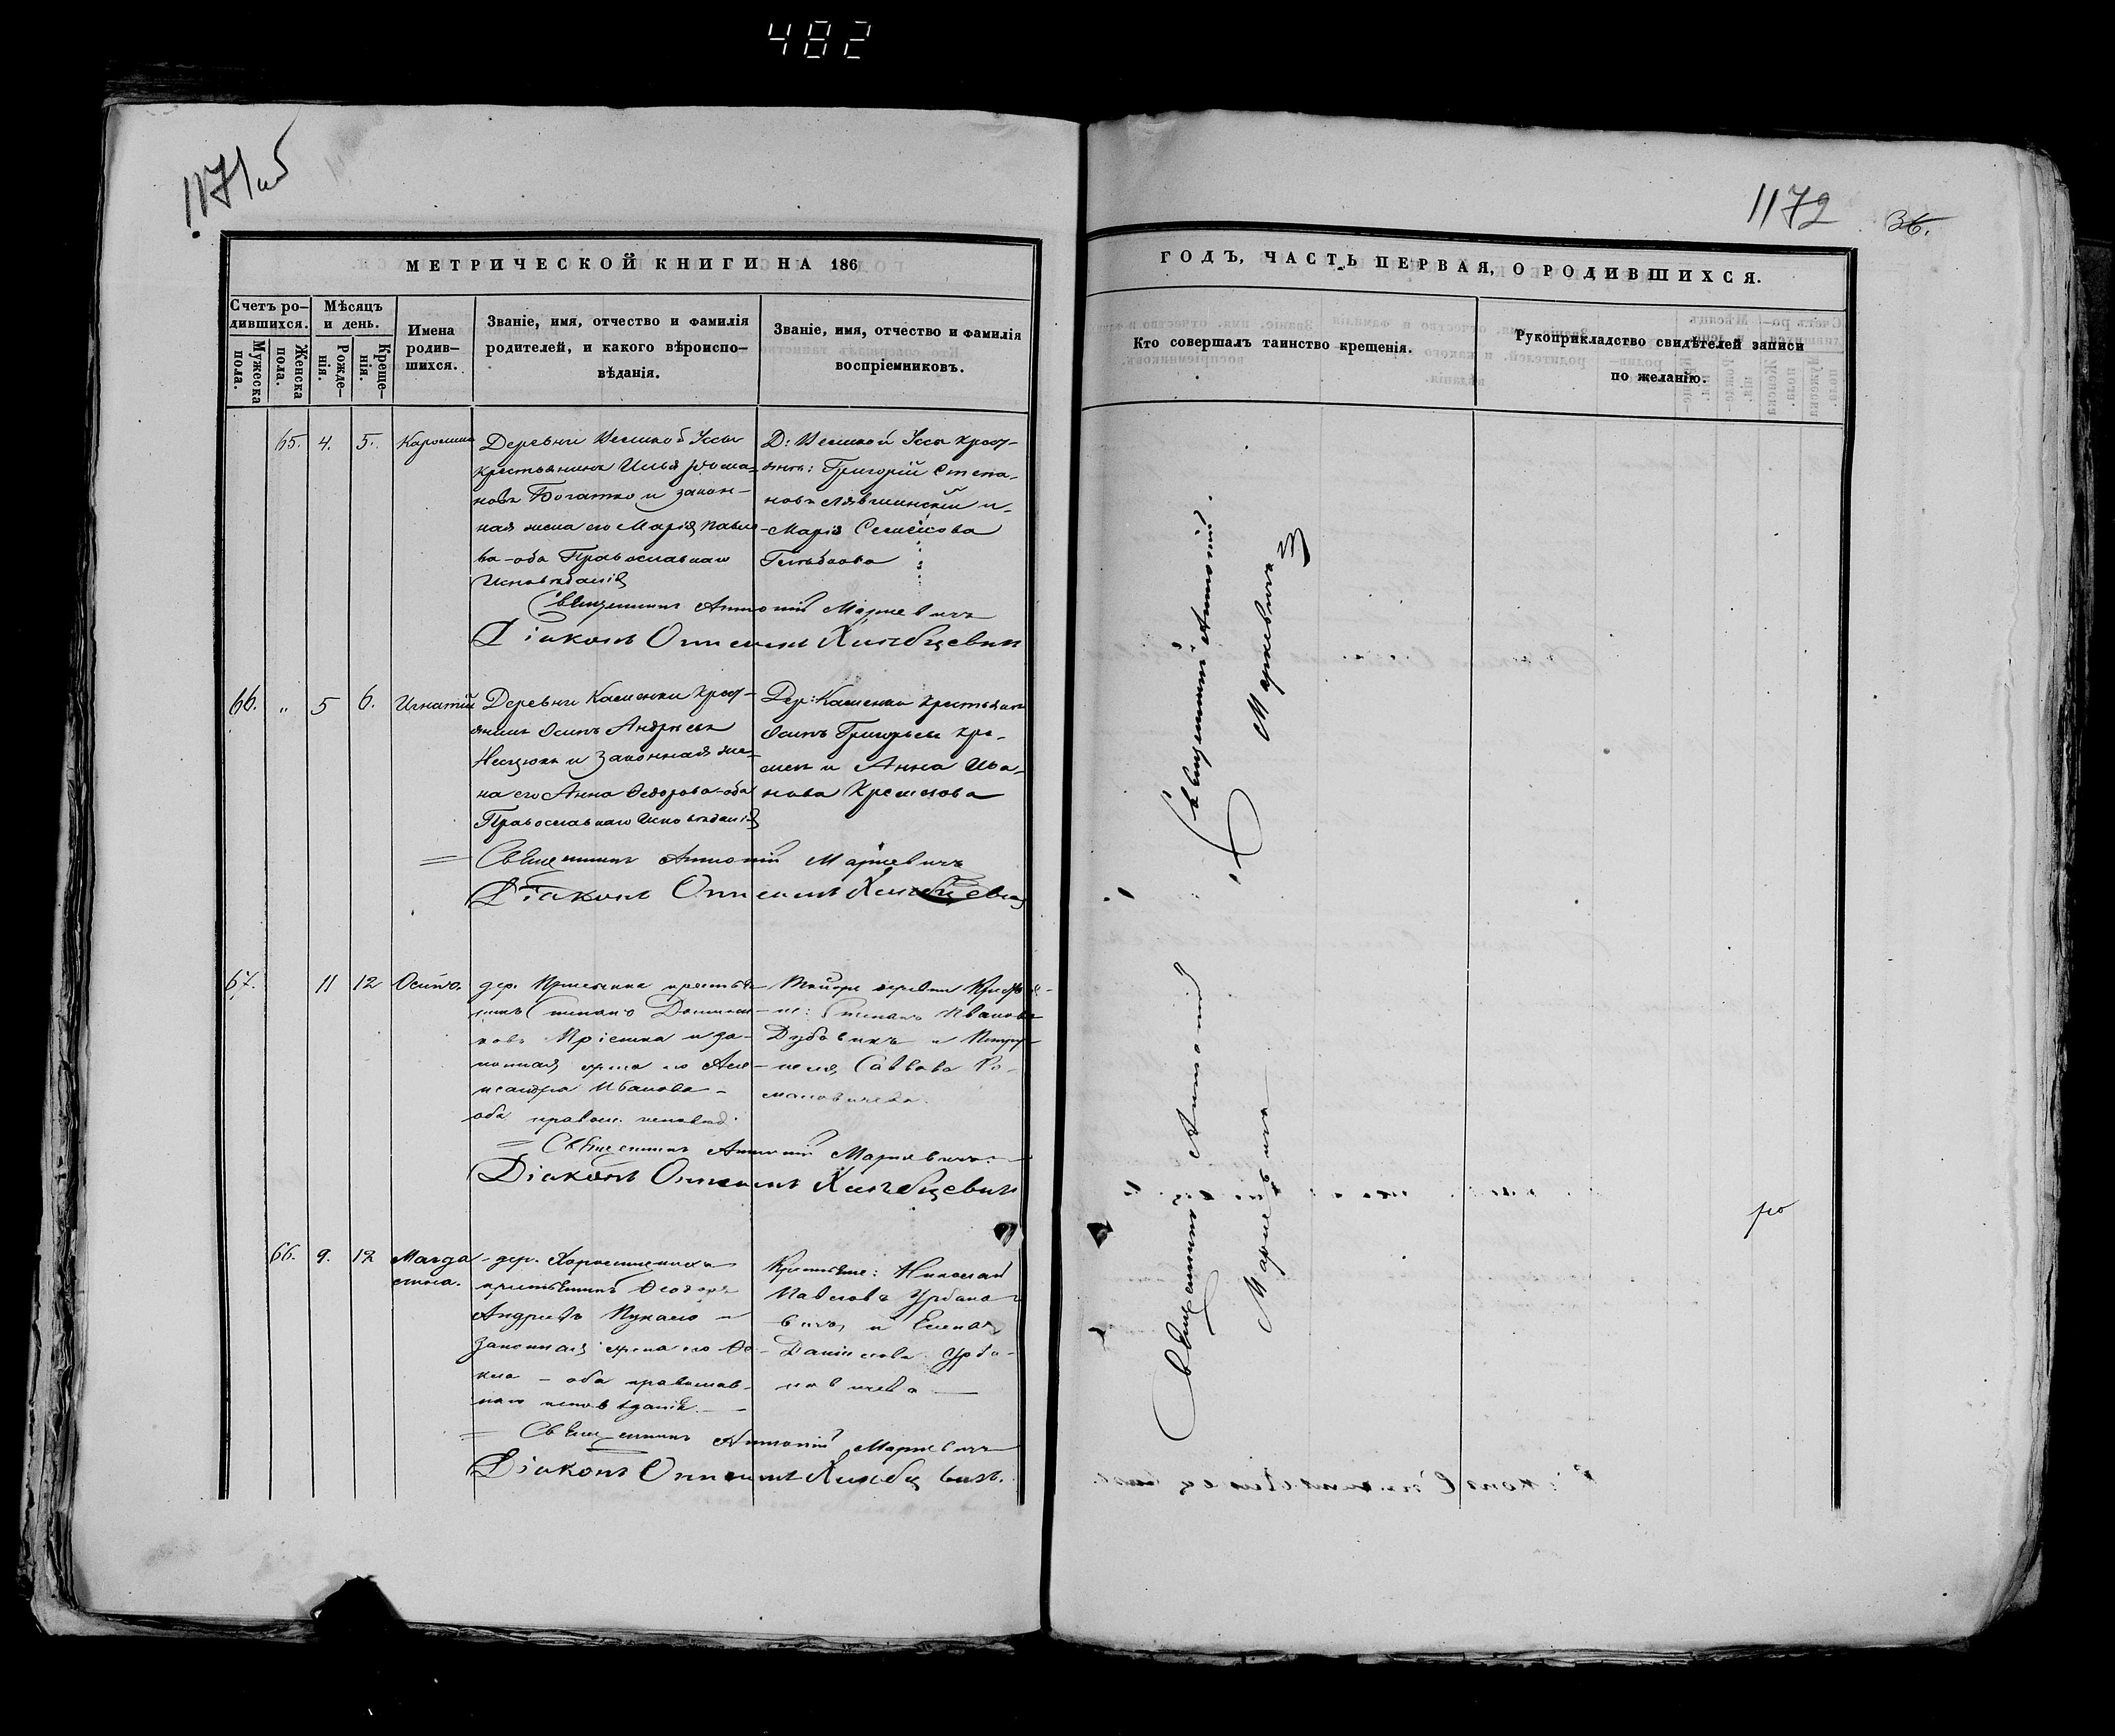 482
1171об
1172
36.
МЕТРИЧЕСКОЙ КНИГИ НА 186
ГОДЪ, ЧАСТЬ ПЕРВАЯ, О РОДИВШИХСЯ.
Счетъ ро-
дившихся.
Мужеска пола.
Женска пола.
Мѣсяцъ
и день.
Рожде-
нія.
Креще-
нія.
Имена
родив-
шихся.
Званіе, имя, отчество и фамилія
родителей, и какого вѣроиспо-
вѣданія.
Званіе, имя, отчество и фамилія
воспріемниковъ.
Кто совершалъ таинство крещенія.
Рукоприкладство свидѣтелей записи
по желанію.
65. 4. 5.
Деревни Великой Уссы
крестьянинъ Илья Рома-
новъ Богатко и закон-
ная жена его Марія Павло-
ва - оба Православнаго
Исповѣданія
Д: Великой Уссы крест-
яне: Григорій Степа-
новъ и
Марія Семенова
Священникъ Антоній Маркевичъ
Діаконъ Онисимъ Хлѣбцевичъ
66. " 5 6. Игнатій
Деревни Каменки крест-
янинъ Осипъ Андреевъ
и законная же-
на его Анна Федорова - оба
Православнаго Исповѣданія
Дер: Каменки крестьян
Осипъ Григорьевъ Кре-
мен и Анна Ива-
нова Кременова
Священникъ Антоній Маркевичъ
Діаконъ Онисимъ Хлѣбцевичъ
67. 11 12 Осипъ.
дер. крестья-
нинъ Степанъ
новъ и за-
конная жена его Але-
ксандра Иванова -
оба правосл. исповѣд.
деревни
не: Степанъ Ивановъ
Дубовикъ и
Саввова Ро-
мановичева.
Священникъ Антоній Маркевичъ
Діаконъ Онисимъ Хлѣбцевичъ
66. 9. 12 Магда
лина.
дер.
крестьянинъ Феодоръ
Андреевъ
законная жена его
оба православ-
наго исповѣданія.
Крестьяне: Николай
Павловъ Урбано-
вичъ и Елена
Даніилова Урба-
новичева
Священникъ Антоній Маркевичъ
Діаконъ Онисимъ Хлѣбцевичъ.
Священникъ Антоній
Маркевичъ
Священникъ Антоній
Маркевичъ